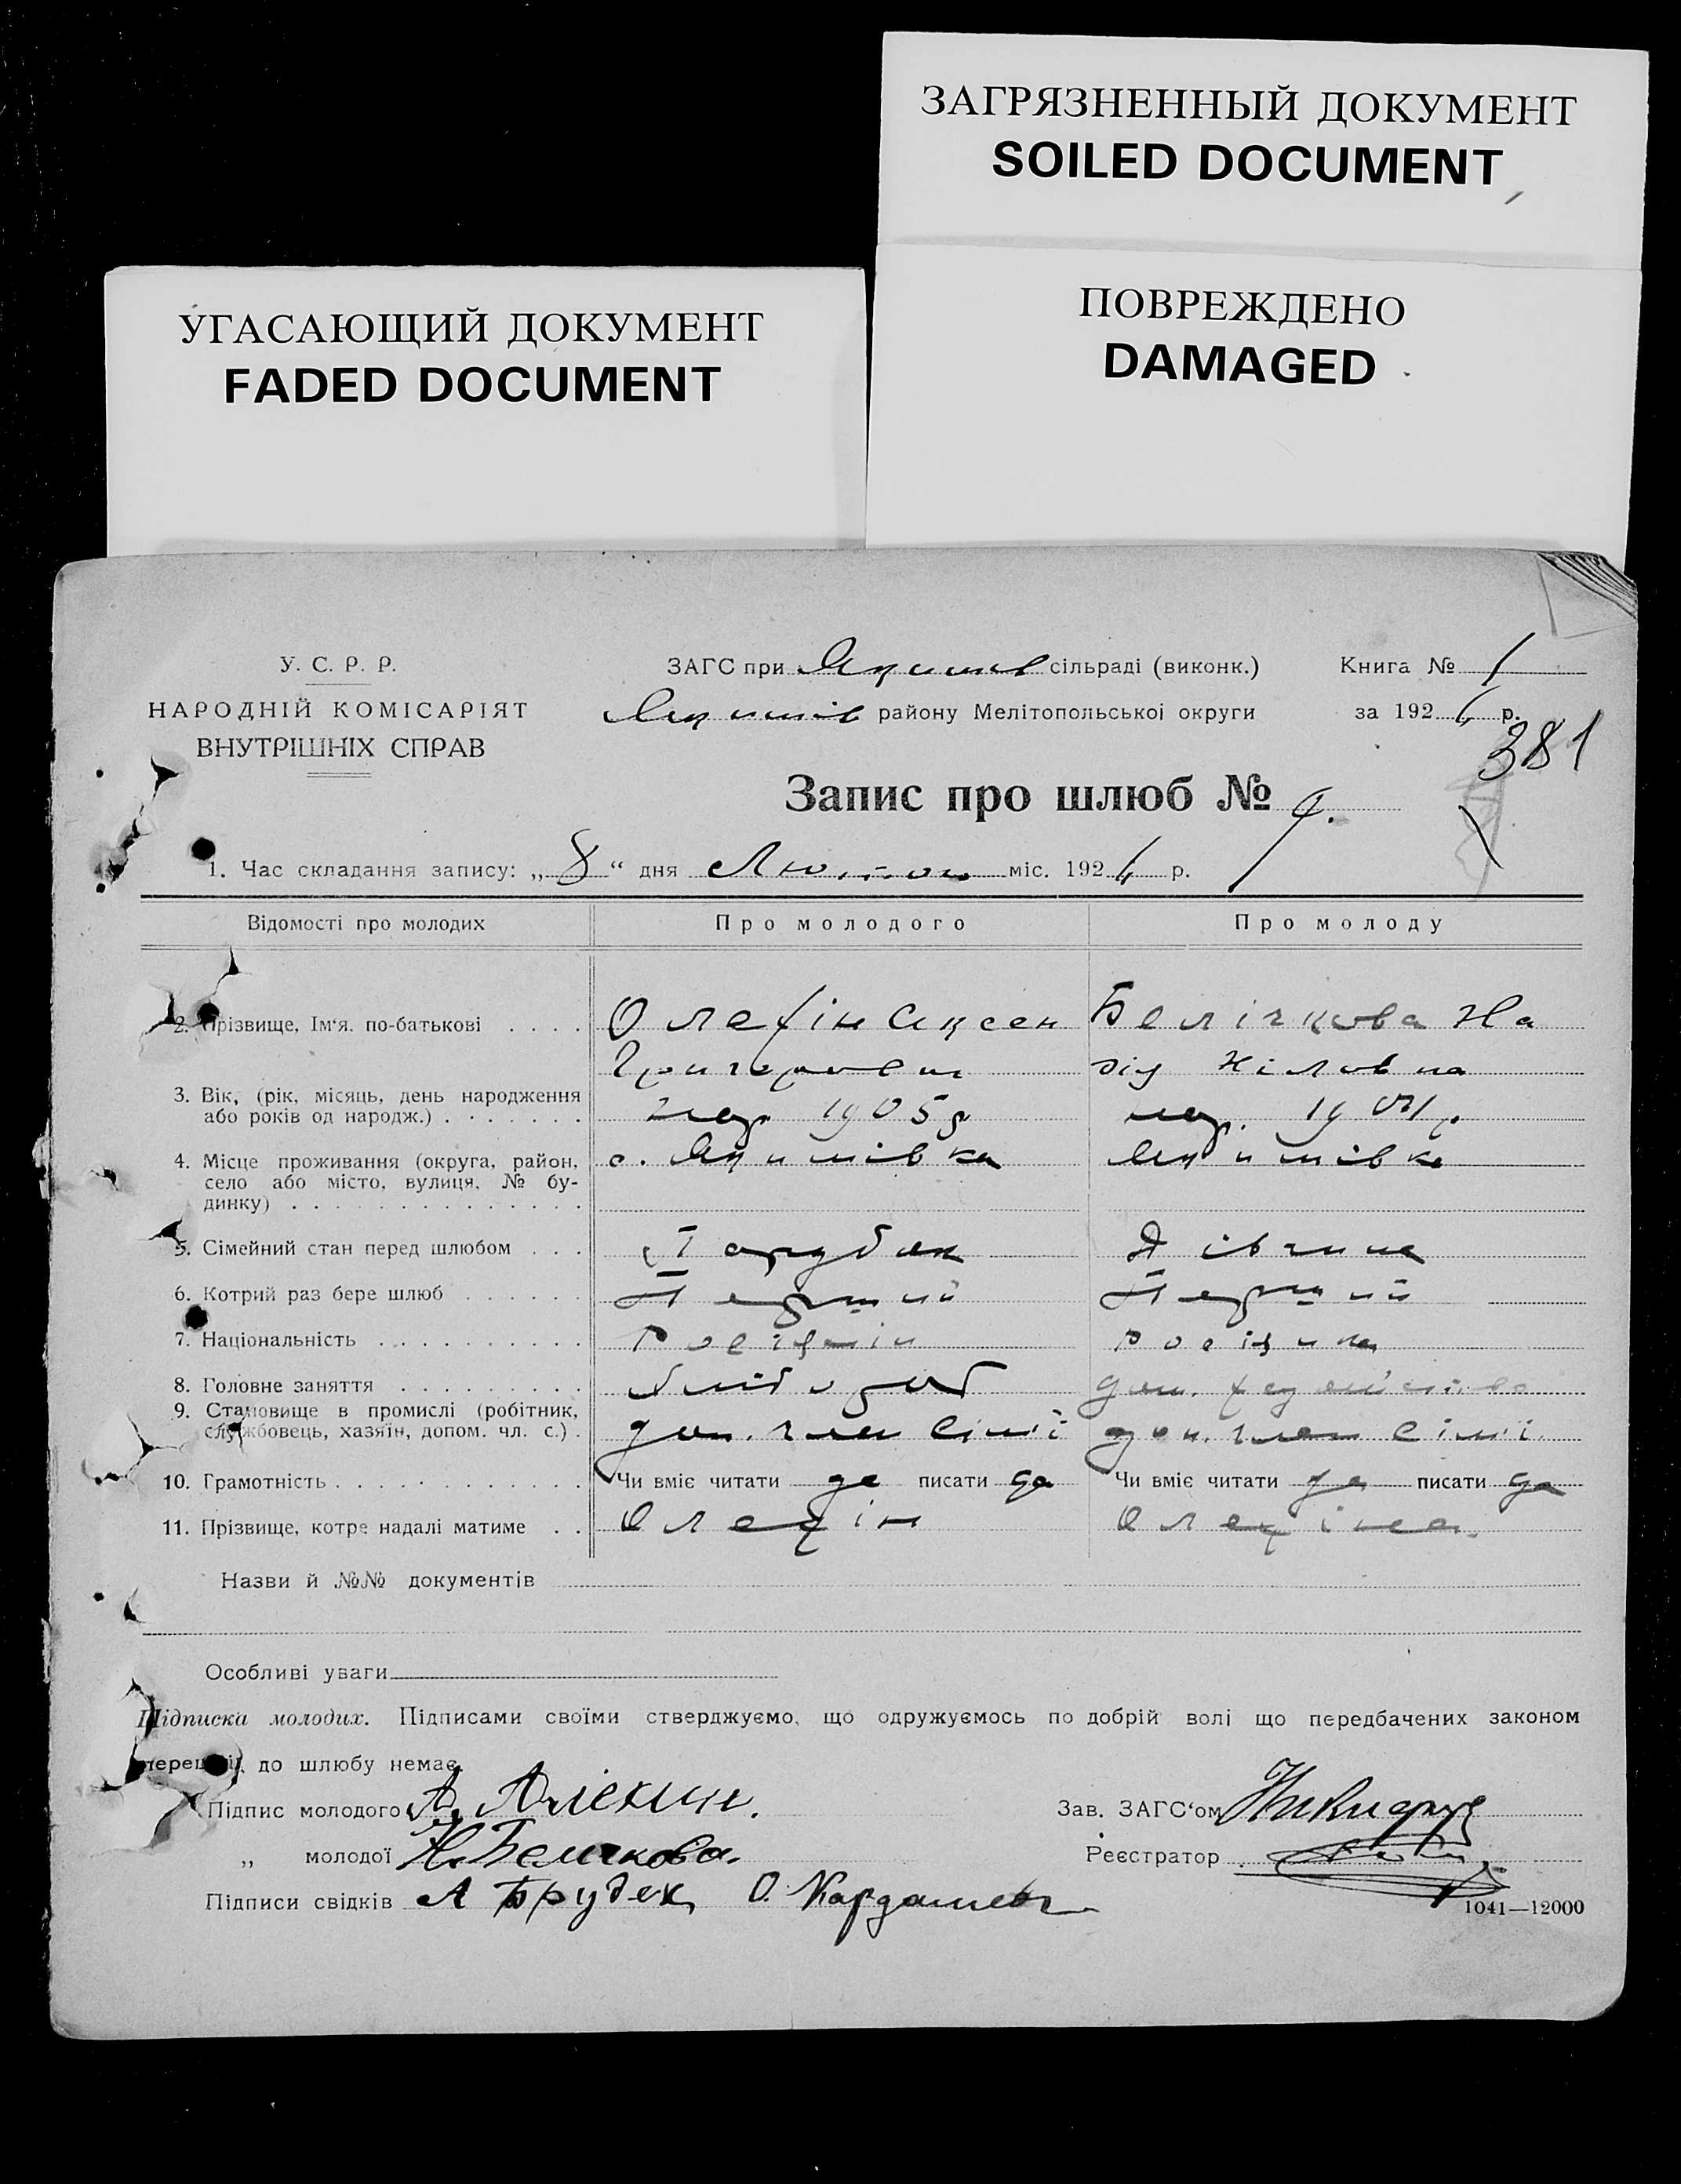 ЗАГРЯЗНЕННЫЙ ДОКУМЕНТ
SOILED DOCUMENT
УГАСАЮЩИЙ ДОКУМЕНТ
FADED DOCUMENT
ПОВРЕЖДЕНО
DAMAGED
У. С. Р. Р.
НАРОДНІЙ КОМІСАРІЯТ
ВНУТРІШНІХ СПРАВ
ЗАГС при Якимів сільраді (виконк.)
Якимів району Мелітопольської округи
Книга № 1
за 1926 р.
381
Запис про шлюб № 9.
1. Час складання запису: „8“ дня Лютого міс. 1926 р.
Відомості про молодих Про молодого Про молоду
2. Прізвище, Ім'я, по-батькові . . . . Олехін Аксен Белічкова На
Григорович дія Ніловна
3. Вік, (рік, місяць, день народження
або років од народж.) . . . . . . . нар. 1905 р нар. 1904 р.
4. Місце проживання (округа, район, с. Якимівка Якимівка
село або місто, вулиця, № бу-
динку) . . . . . . . . . . . . . .
5. Сімейний стан перед шлюбом . . . Парубок Дівчина
6. Котрий раз бере шлюб . . . . . . Перший Перший
7. Національність . . . . . . . . . . Росіянін росіянка
8. Головне заняття . . . . . . . . . хлібороб дом. хазяйство
9. Становище в промислі (робітник,
службовець, хазяїн, допом. чл. с.) . доп. член сім'ї доп. член сім'ї
10. Грамотність . . . . . . . . . . . . Чи вміє читати да писати да Чи вміє читати да писати да
11. Прізвище, котре надалі матиме . . Олехін Олехіна.
Назви й №№ документів
Особливі уваги
Підписка молодих. Підписами своїми стверджуємо, що одружуємось по добрій волі що передбачених законом
перешкід до шлюбу немає.
Підпис молодого А. Алехин. Зав. ЗАГС'ом
„ молодої Н. Беличкова. Реєстратор
Підписи свідків А О. Кардашева
1041—12000